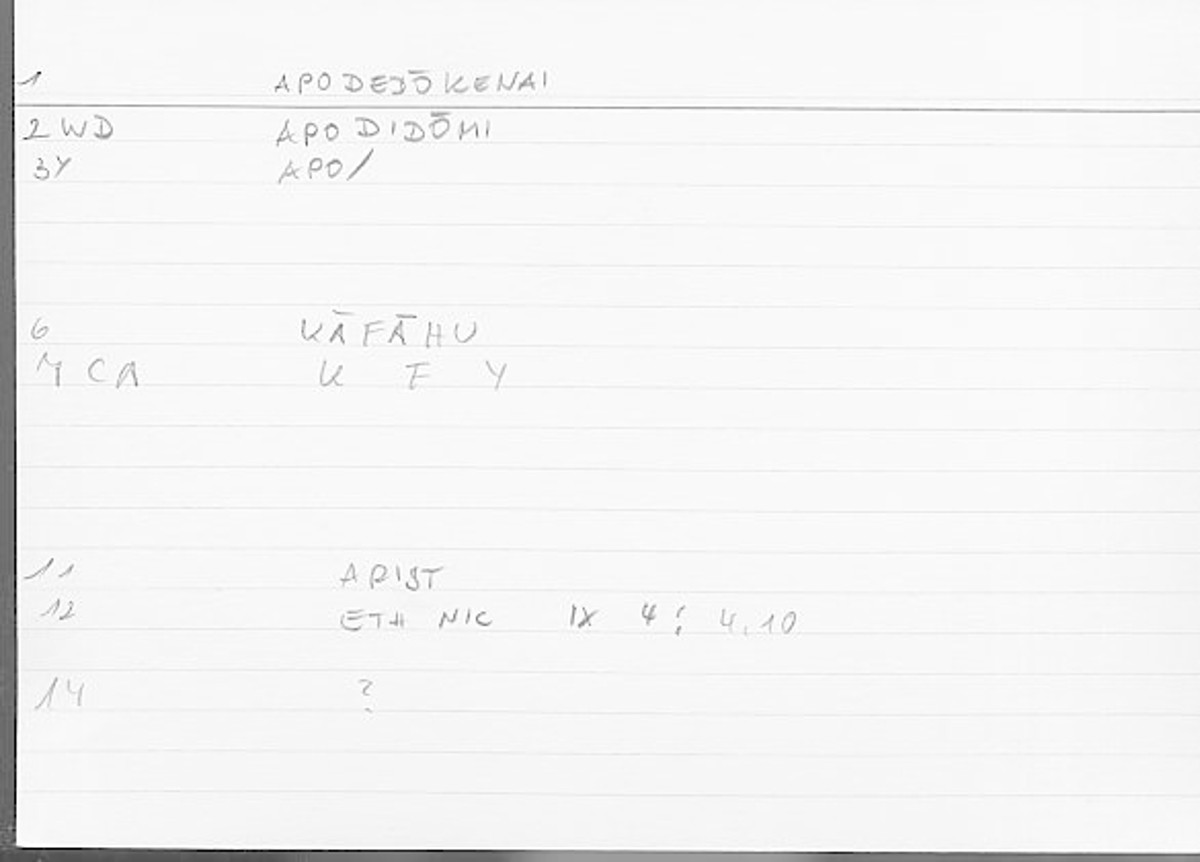 1 APODEDŌKENAI
2 WD APODIDŌMI
3Y APO/
6 KĀFĀHU
M CA K F Y
11 ARIST
12 ETH NIC IX 4; 4.10
14 ?